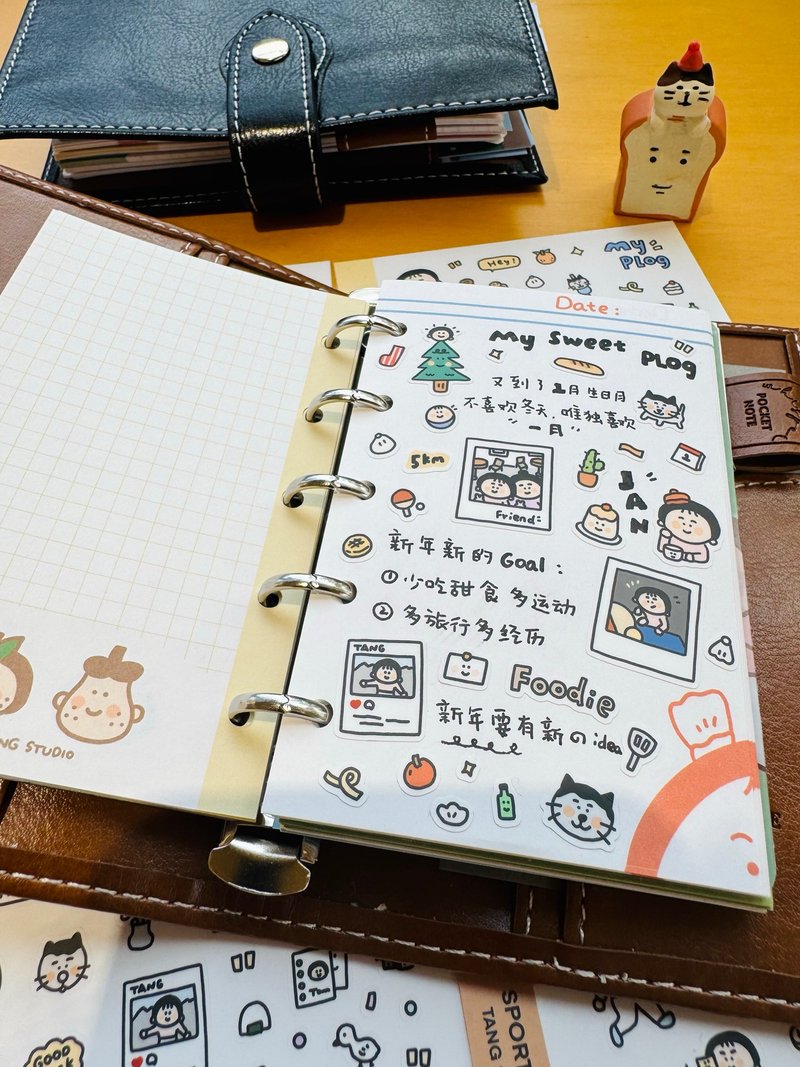 Hey!
My
PLOG
Date:
My Sweet PLOG
又到了1月生日月
不喜欢冬天,唯独喜欢
"一月"
5km
JAN
Friend:
新年新的Goal:
① 少吃甜食多运动
② 多旅行多经历
TANG
Foodie
新年要有新のidea
POCKET
NOTE
NG STUDIO
TANG
Tom
GOOD
SPORT
TANG